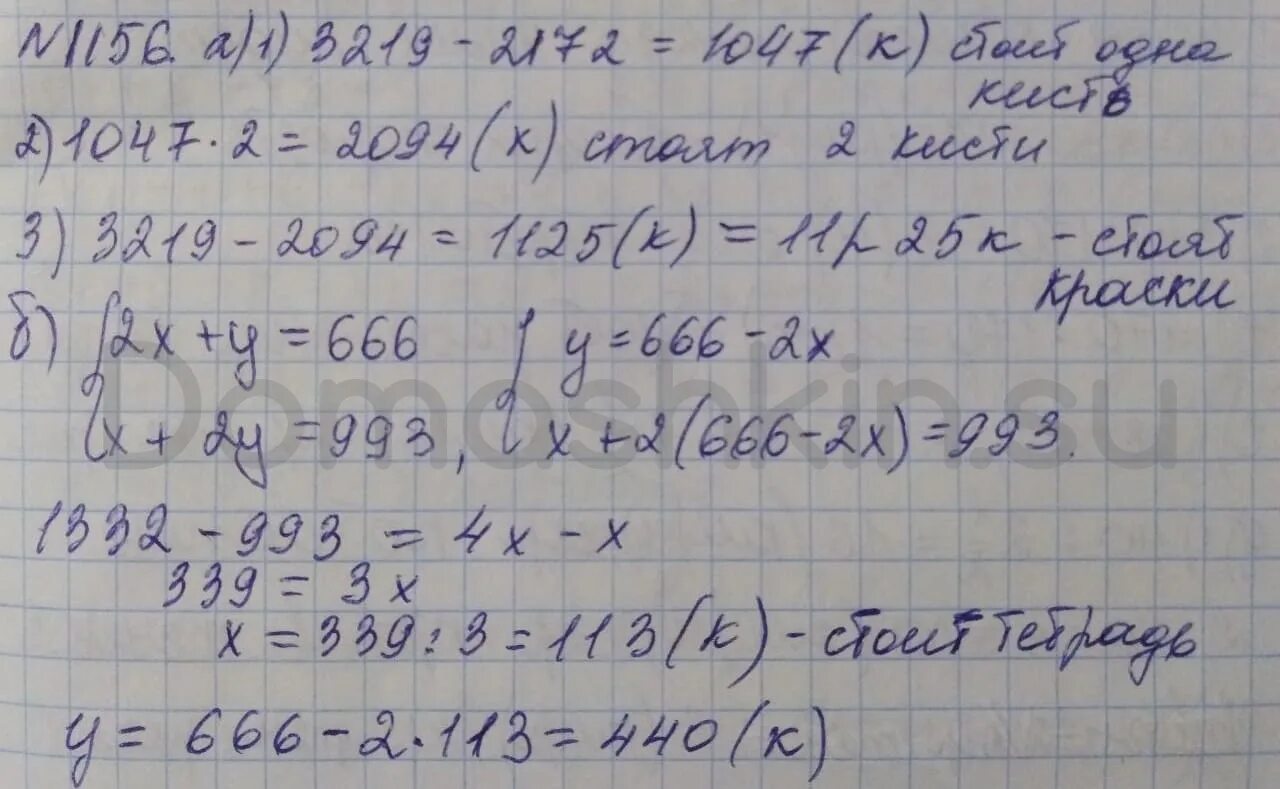 N1156. а) 1) 3219 - 2172 = 1047 (к) стоит одна
кисть
2) 1047 · 2 = 2094 (к) стоят 2 кисти
3) 3219 - 2094 = 1125 (к) = 11р 25к - стоят
краски
б) { 2x + y = 666 { y = 666 - 2x
x + 2y = 993, x + 2(666 - 2x) = 993.
Domoshkin.su
1332 - 993 = 4x - x
339 = 3x
x = 339 : 3 = 113 (к) - стоит тетрадь
y = 666 - 2 · 113 = 440 (к)